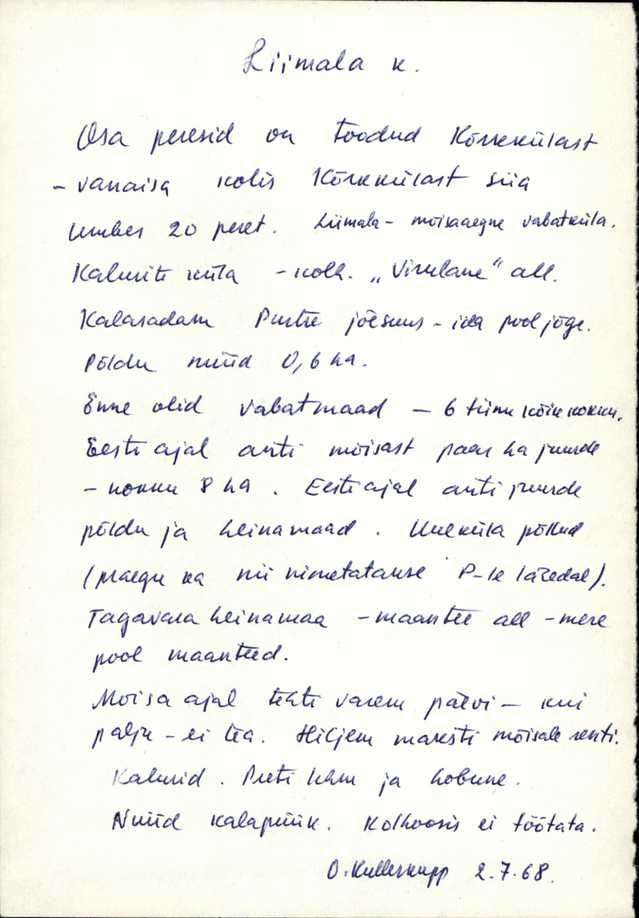 Liimala k.
Osa peresid on toodud Kõrrekülast
- vanaisa kolis Kõrrekülast siia
umbes 20 peret. Liimala - mõisaaegne vabatküla.
Kalurite küla - kolh. „Virulane" all.
Kalasadam Purtse jõe suus - ida pool jõge.
Põldu nüüd 0,6 ha.
Enne olid vabatmaad - 6 tiinu kõik kokku.
Eesti ajal anti mõisast paar ha juurde
- kokku 8 ha. Eesti ajal anti juurde
põldu ja heinamaad. Uueküla põllud
(praegu ka nii nimetatakse P-le lähedal).
Tagavara heinamaa - maantee all - mere
pool maanteed.
Mõisa ajal tehti varem päevi - kui
palju - ei tea. Hiljem maksti mõisale renti.
Kalurid. Peeti lehm ja hobune.
Nüüd kalapüük. Kolhoosis ei töötata.
O. Kullerkupp 2.7.68.